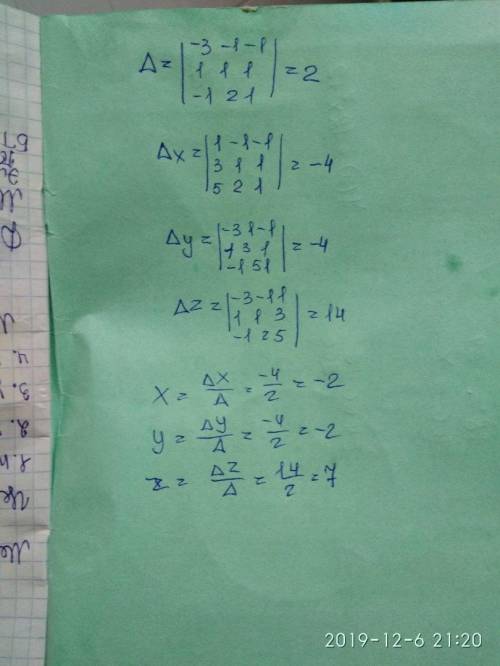 Δ = | -3 -1 -1 |
| 1 1 1 | = 2
| -1 2 1 |
Δx = | 1 -1 -1 |
| 3 1 1 | = -4
| 5 2 1 |
Δy = | -3 1 -1 |
| 1 3 1 | = -4
| -1 5 1 |
Δz = | -3 -1 1 |
| 1 1 3 | = 14
| -1 2 5 |
x = Δx/Δ = -4/2 = -2
y = Δy/Δ = -4/2 = -2
z = Δz/Δ = 14/2 = 7
2019-12-6 21:20